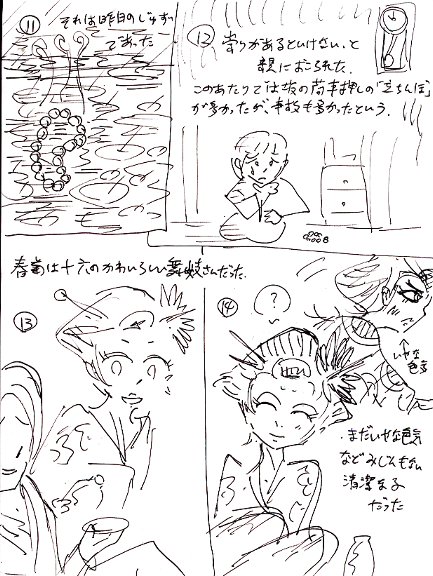 ⑪
それは昨日のじゅず
であった
⑫
祟りがあるといけない、と
親におこられた。
このあたりでは坂の荷車押しの「立ちんぼ」
が多かったが、事故も多かったという。
春菊は十六のかわいらしい舞妓さんだった。
⑬
⑭
?
いやな
色気
まだいやな色気
などみじんもない
清潔な子
だった